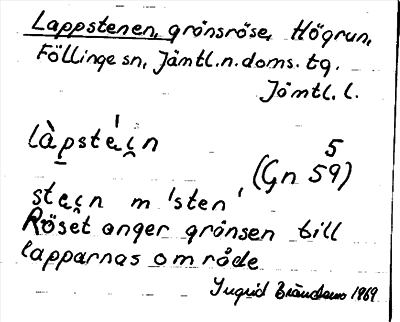 Lappstenen, gränsröse, Högrun,
Föllinge sn, Jämtl.n.doms.tg.
Jämtl. l.
là̱pste̍i̯n
5
(Gn 59)
stei̯n m 'sten'
Röset anger gränsen till
lapparnas område
Ingrid 1969